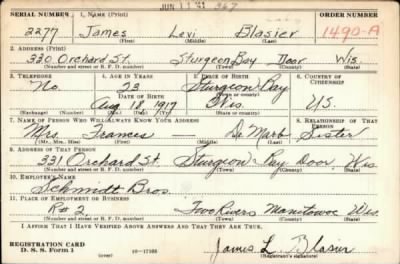 JUN 11 '41 367
SERIAL NUMBER 1. NAME (Print) ORDER NUMBER
2277 James Levi Blasier 1490-A
(First) (Middle) (Last)
2. ADDRESS (Print)
330 Orchard St. Sturgeon Bay Door Wis.
(Number and street or R. F. D. number) (Town) (County) (State)
3. TELEPHONE 4. AGE IN YEARS 5. PLACE OF BIRTH 6. COUNTRY OF CITIZENSHIP
No. 23 Sturgeon Bay
(Town or county)
DATE OF BIRTH
Aug 18, 1917 Wis. U.S.
(Exchange) (Number) (Mo.) (Day) (Yr.) (State or country)
7. NAME OF PERSON WHO WILL ALWAYS KNOW YOUR ADDRESS 8. RELATIONSHIP OF THAT PERSON
Mrs. Frances De Marb Sister
(Mr., Mrs., Miss) (First) (Middle) (Last)
9. ADDRESS OF THAT PERSON
331 Orchard St. Sturgeon Bay Door Wis
(Number and street or R. F. D. number) (Town) (County) (State)
10. EMPLOYER'S NAME
Schmidt Bros.
11. PLACE OF EMPLOYMENT OR BUSINESS
R#2 Two Rivers Manitowoc Wis
(Number and street or R. F. D. number) (Town) (County) (State)
I AFFIRM THAT I HAVE VERIFIED ABOVE ANSWERS AND THAT THEY ARE TRUE.
REGISTRATION CARD
D. S. S. Form 1 (over) 16-17105 James L. Blasier
(Registrant's signature)